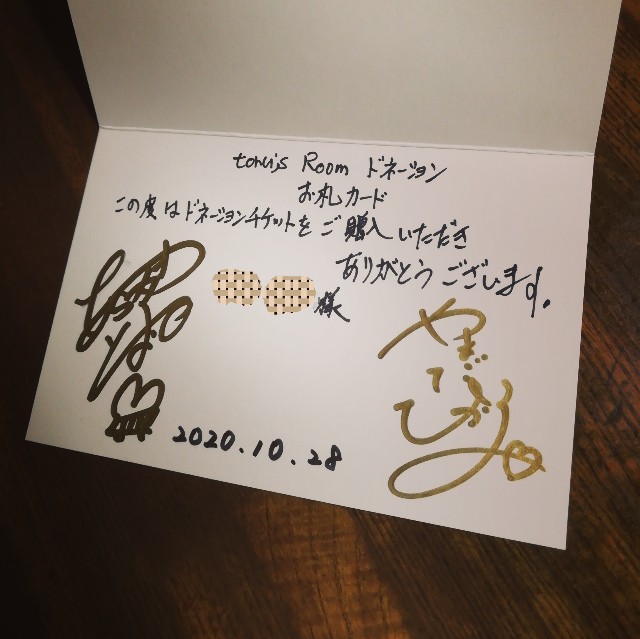 toru's Room ドネーション
お札カード
この度はドネーションチケットをご購入いただき
ありがとうございます。
様
やぎ
ひろ
2020.10.28